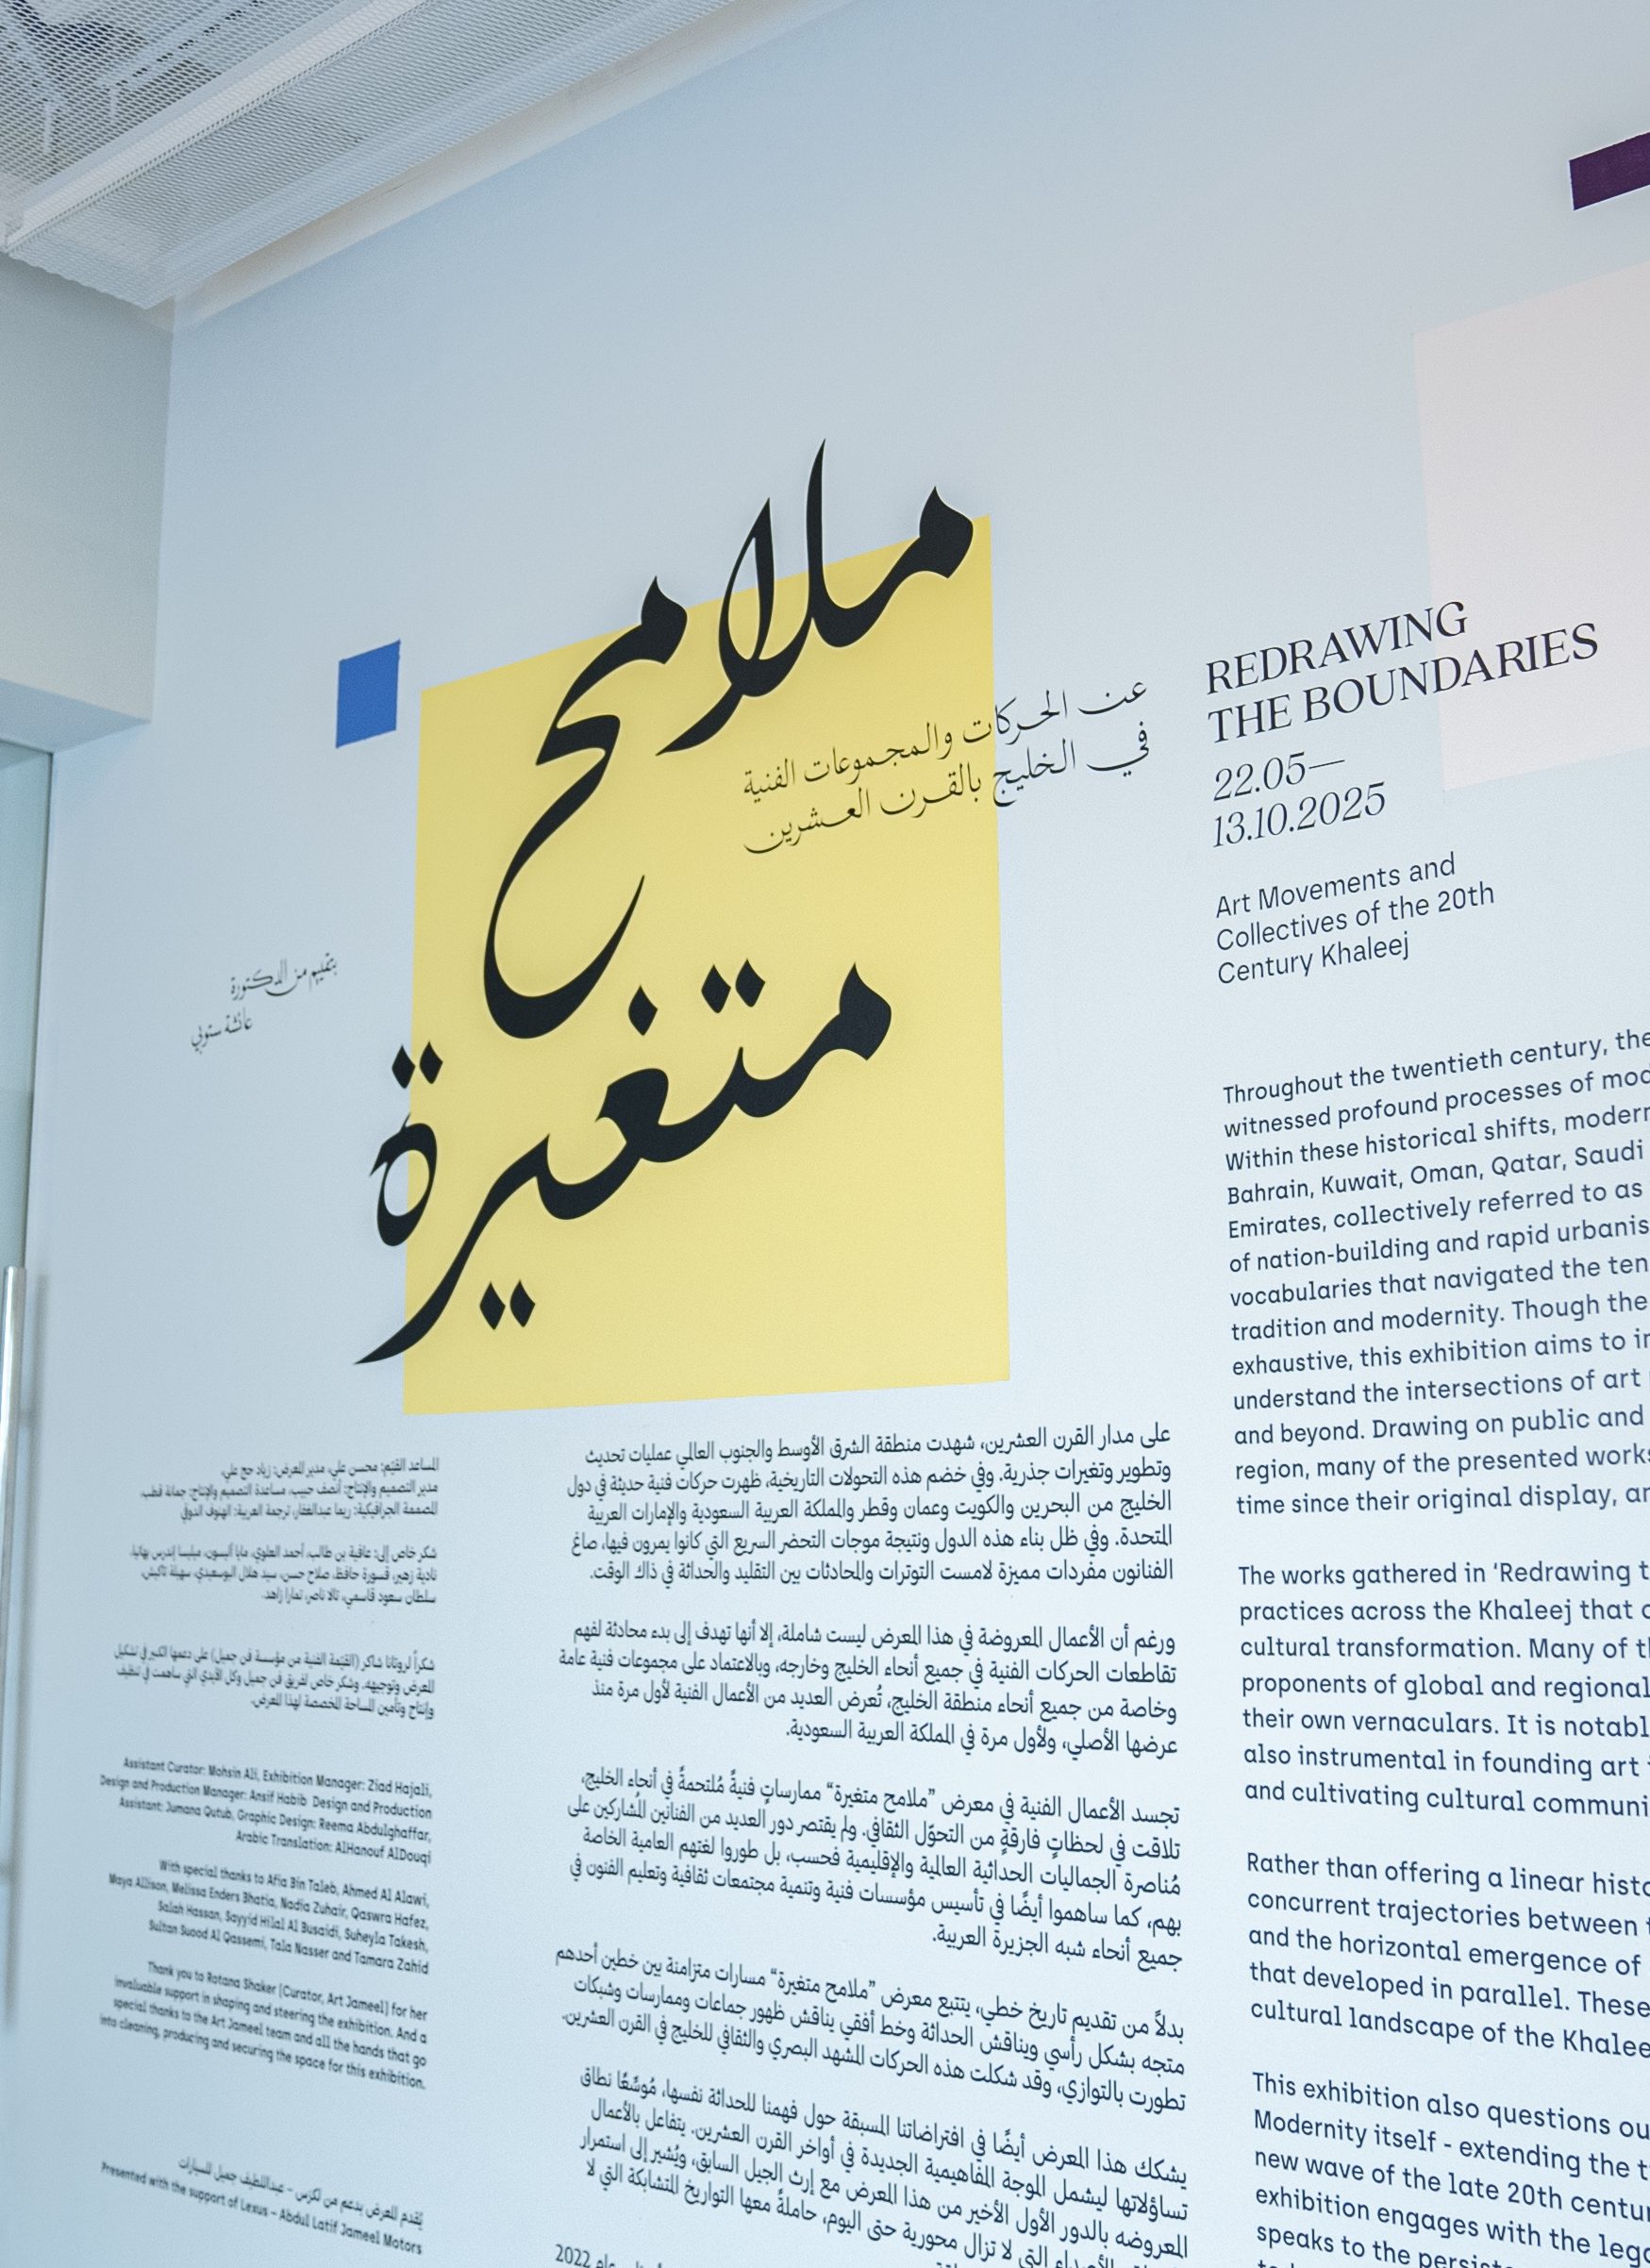 ملامح
متغيرة
عن الحركات والمجموعات الفنية
في الخليج بالقرن العشرين
بتقييم من الدكتورة
عائشة ستوبي
REDRAWING
THE BOUNDARIES
22.05—
13.10.2025
Art Movements and
Collectives of the 20th
Century Khaleej
على مدار القرن العشرين، شهدت منطقة الشرق الأوسط والجنوب العالمي عمليات تحديث
وتطوير وتغيرات جذرية. وفي خضم هذه التحولات التاريخية، ظهرت حركات فنية حديثة في دول
الخليج من البحرين والكويت وعمان وقطر والمملكة العربية السعودية والإمارات العربية
المتحدة. وفي ظل بناء هذه الدول ونتيجة موجات التحضر السريع التي كانوا يمرون فيها، صاغ
الفنانون مفردات مميزة لامست التوترات والمحادثات بين التقليد والحداثة في ذاك الوقت.
ورغم أن الأعمال المعروضة في هذا المعرض ليست شاملة، إلا أنها تهدف إلى بدء محادثة لفهم
تقاطعات الحركات الفنية في جميع أنحاء الخليج وخارجه، وبالاعتماد على مجموعات فنية عامة
وخاصة من جميع أنحاء منطقة الخليج، تُعرض العديد من الأعمال الفنية لأول مرة منذ
عرضها الأصلي، ولأول مرة في المملكة العربية السعودية.
تجسد الأعمال الفنية في معرض ”ملامح متغيرة“ ممارساتٍ فنيةً مُلتحمةً في أنحاء الخليج،
تلاقت في لحظاتٍ فارقةٍ من التحوّل الثقافي. ولم يقتصر دور العديد من الفنانين المُشاركين على
مُناصرة الجماليات الحداثية العالمية والإقليمية فحسب، بل طوروا لغتهم العامية الخاصة
بهم، كما ساهموا أيضًا في تأسيس مؤسسات فنية وتنمية مجتمعات ثقافية وتعليم الفنون في
جميع أنحاء شبه الجزيرة العربية.
بدلاً من تقديم تاريخ خطي، يتتبع معرض ”ملامح متغيرة“ مسارات متزامنة بين خطين أحدهم
متجه بشكل رأسي ويناقش الحداثة وخط أفقي يناقش ظهور جماعات وممارسات وشبكات
تطورت بالتوازي، وقد شكلت هذه الحركات المشهد البصري والثقافي للخليج في القرن العشرين.
يشكك هذا المعرض أيضًا في افتراضاتنا المسبقة حول فهمنا للحداثة نفسها، مُوسِّعًا نطاق
تساؤلاتها ليشمل الموجة المفاهيمية الجديدة في أواخر القرن العشرين. يتفاعل بالأعمال
المعروضه بالدور الأول الأخير من هذا المعرض مع إرث الجيل السابق، ويُشير إلى استمرار
التي لا تزال محورية حتى اليوم، حاملةً معها التواريخ المتشابكة التي لا
عام 2022
Throughout the twentieth century, the
witnessed profound processes of mod
Within these historical shifts, modern
Bahrain, Kuwait, Oman, Qatar, Saudi
Emirates, collectively referred to as
of nation-building and rapid urbanis
vocabularies that navigated the ten
tradition and modernity. Though the
exhaustive, this exhibition aims to in
understand the intersections of art
and beyond. Drawing on public and
region, many of the presented works
time since their original display, an
The works gathered in ‘Redrawing t
practices across the Khaleej that c
cultural transformation. Many of th
proponents of global and regional
their own vernaculars. It is notabl
also instrumental in founding art
and cultivating cultural communi
Rather than offering a linear histo
concurrent trajectories between
and the horizontal emergence of
that developed in parallel. These
cultural landscape of the Khalee
This exhibition also questions ou
Modernity itself - extending the t
new wave of the late 20th centur
exhibition engages with the lega
speaks to the persiste
المساعد القيّم: محسن علي، مدير المعرض: زياد حج علي،
مدير التصميم والإنتاج: أنصف حبيب، مساعدة التصميم والإنتاج: جمانة قطب،
المصممة الجرافيكية: ريما عبدالغفار، ترجمة العربية: الهنوف الدوقي
شكر خاص إلى: عافية بن طالب، أحمد العلوي، مايا أليسون، ميليسا إندرس بهاتيا،
نادية زهير، قسورة حافظ، صلاح حسن، سيد هلال البوسعيدي، سهيلة تاكيش،
سلطان سعود قاسمي، تالا ناصر، تمارا زاهد.
شكراً لروتانا شاكر (القيّمة الفنية من مؤسسة فن جميل) على دعمها الكبير في تشكيل
المعرض وتوجيهه. وشكر خاص لفريق فن جميل وكل الأيدي التي ساهمت في تنظيف
وإنتاج وتأمين المساحة المخصصة لهذا المعرض.
Assistant Curator: Mohsin Ali, Exhibition Manager: Ziad Hajali,
Design and Production Manager: Ansif Habib Design and Production
Assistant: Jumana Qutub, Graphic Design: Reema Abdulghaffar,
Arabic Translation: AlHanouf AlDouqi
With special thanks to Afia Bin Taleb, Ahmed Al Alawi,
Maya Allison, Melissa Enders Bhatia, Nadia Zuhair, Qaswra Hafez,
Salah Hassan, Sayyid Hilal Al Busaidi, Suheyla Takesh,
Sultan Suood Al Qassemi, Tala Nasser and Tamara Zahid
Thank you to Rotana Shaker (Curator, Art Jameel) for her
invaluable support in shaping and steering the exhibition. And a
special thanks to the Art Jameel team and all the hands that go
into cleaning, producing and securing the space for this exhibition.
يُقدم المعرض بدعم من لكزس – عبداللطيف جميل للسيارات
Presented with the support of Lexus – Abdul Latif Jameel Motors